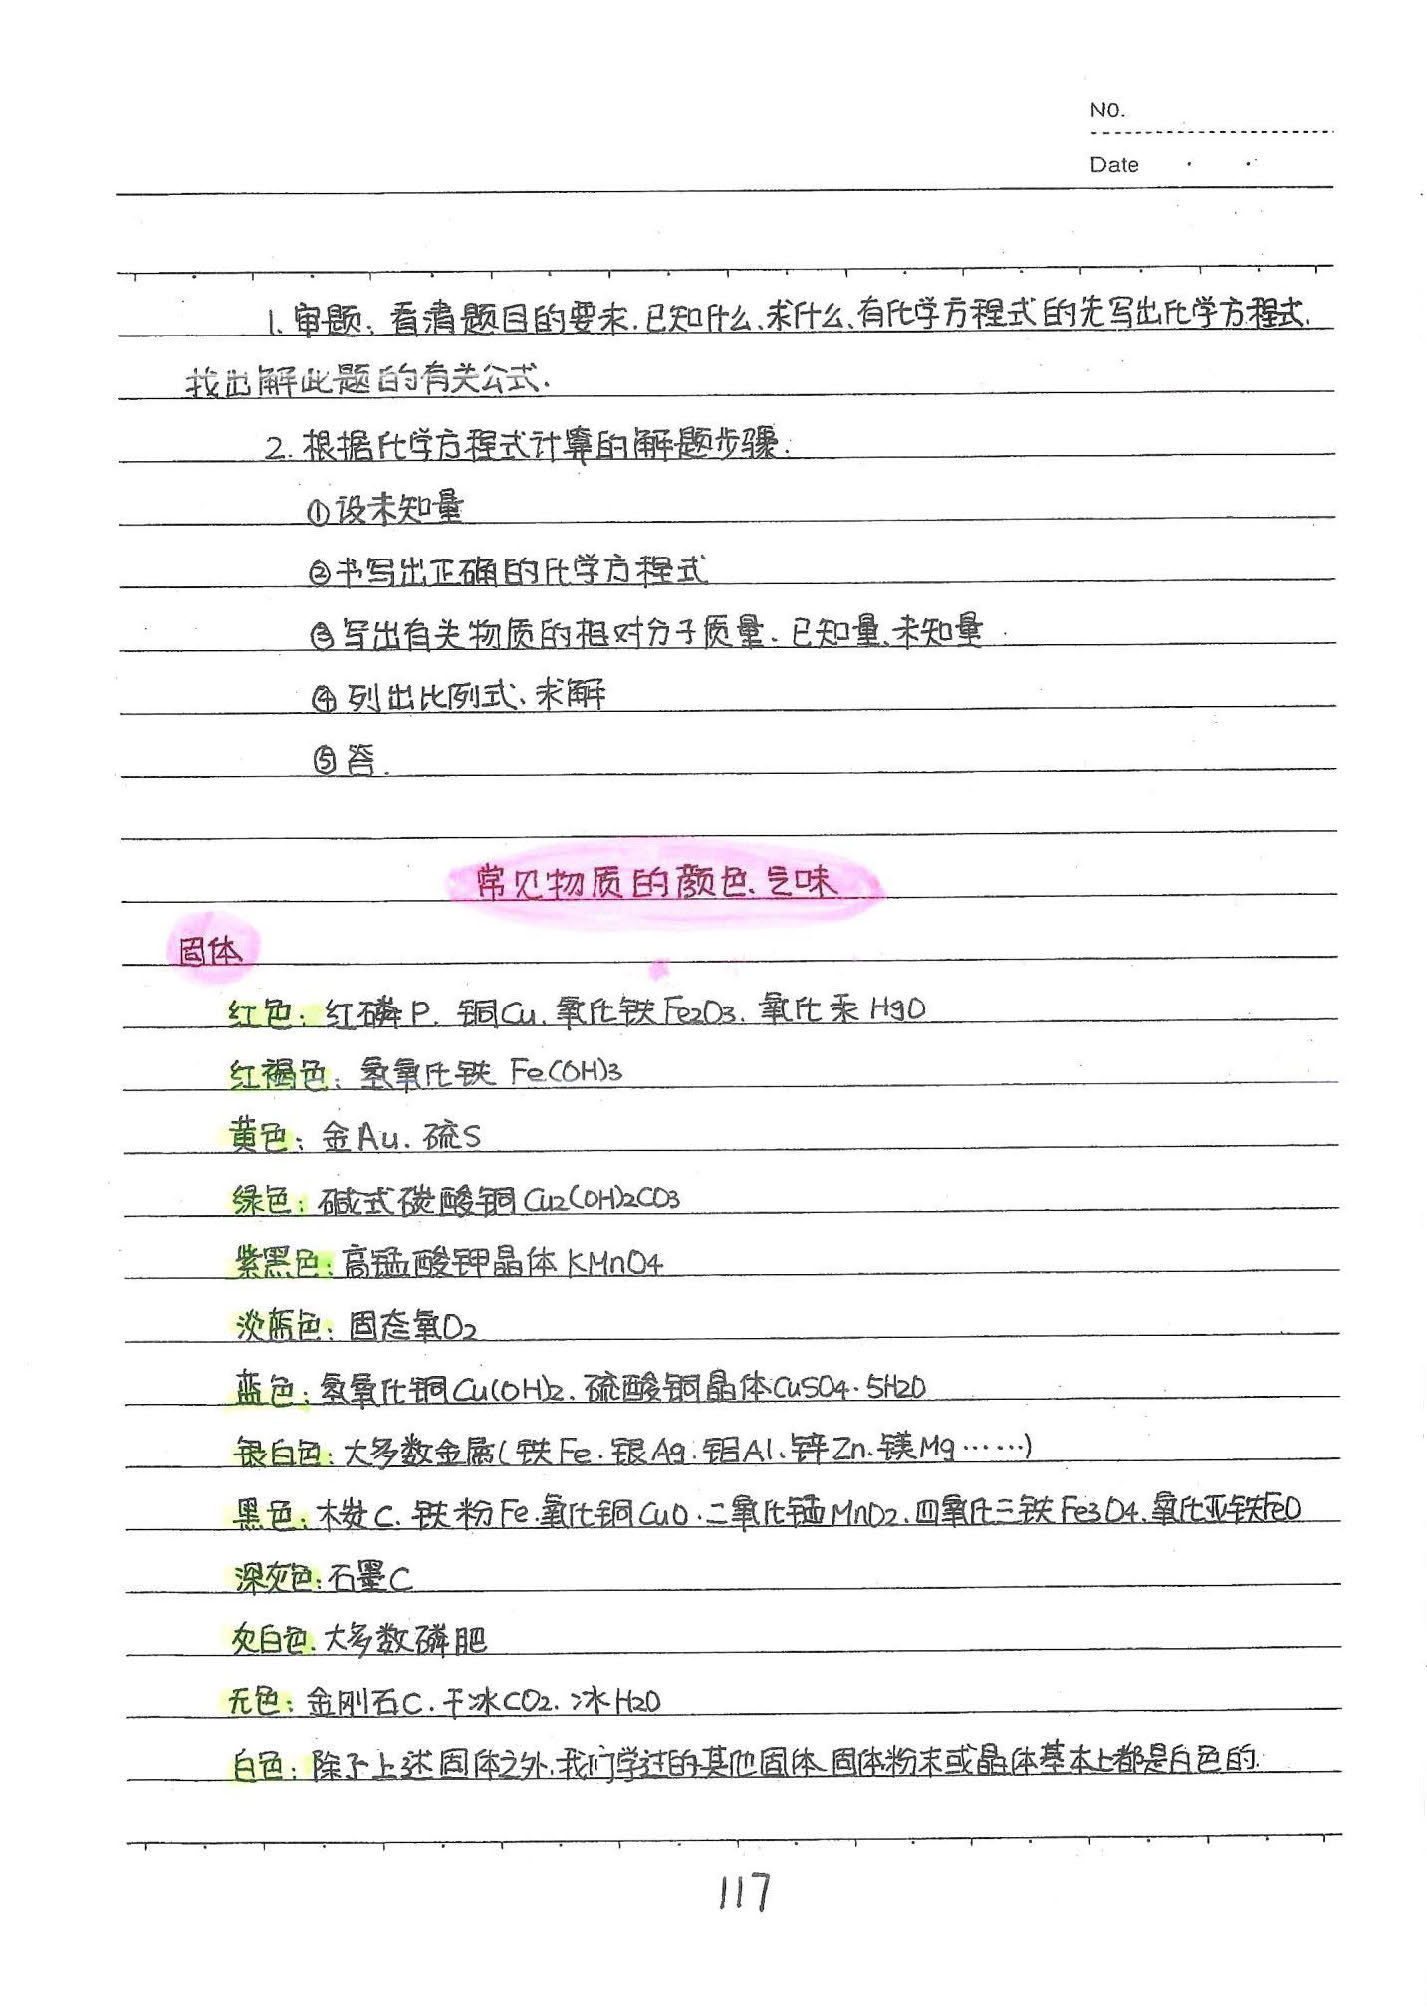 NO.
Date
1. 审题：看清题目的要求.已知什么、求什么、有化学方程式的先写出化学方程式.
找出解此题的有关公式.
2. 根据化学方程式计算的解题步骤.
①设未知量
②书写出正确的化学方程式
③写出有关物质的相对分子质量、已知量、未知量
④列出比例式、求解
⑤答.
常见物质的颜色、气味
固体
红色：红磷P、铜Cu、氧化铁Fe2O3、氧化汞HgO
红褐色：氢氧化铁 Fe(OH)3
黄色：金Au、硫S
绿色：碱式碳酸铜Cu2(OH)2CO3
紫黑色：高锰酸钾晶体KMnO4
淡蓝色：固态氧O2
蓝色：氢氧化铜Cu(OH)2、硫酸铜晶体CuSO4·5H2O
银白色：大多数金属(铁Fe、银Ag、铝Al、锌Zn、镁Mg……)
黑色：木炭C、铁粉Fe、氧化铜CuO、二氧化锰MnO2、四氧化三铁Fe3O4、氧化亚铁FeO
深灰色：石墨C
灰白色、大多数磷肥
无色：金刚石C、干冰CO2、冰H2O
白色：除了上述固体之外,我们学过的其他固体、固体粉末或晶体基本上都是白色的.
117